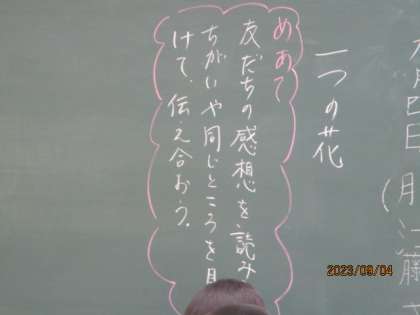 月
一つの花
めあて
友だちの感想を読み
ちがいや同じところを見
けて、伝え合おう。
2023/09/04